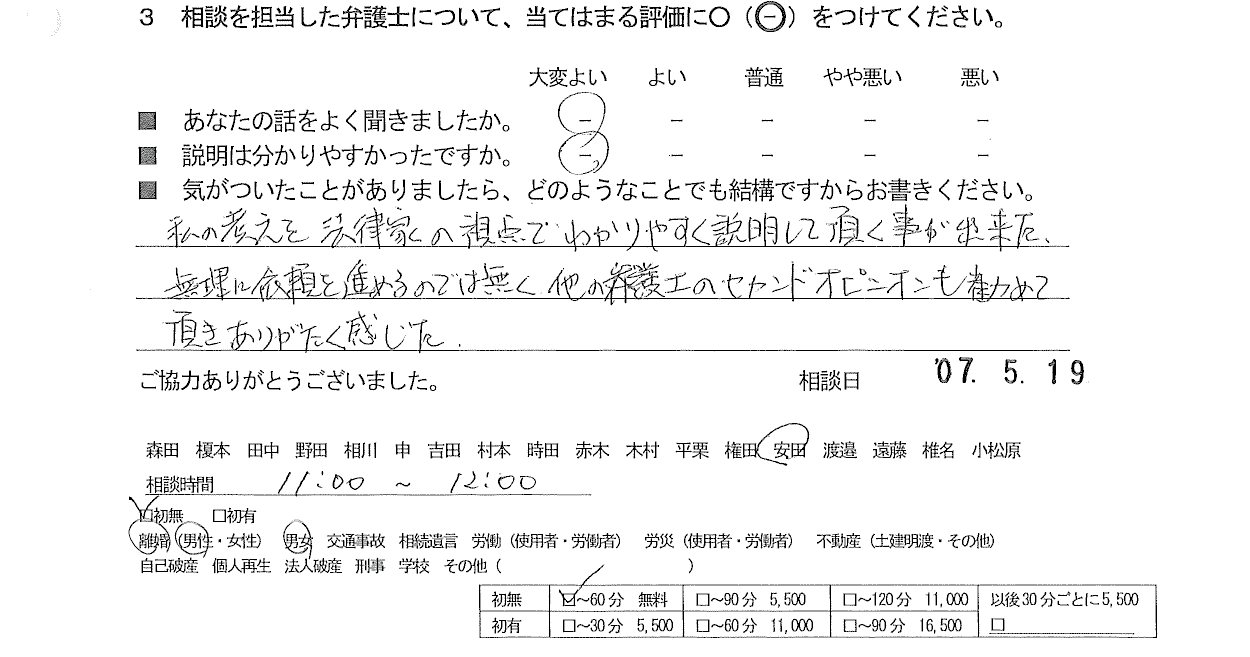 3 相談を担当した弁護士について、当てはまる評価に○（㊀）をつけてください。
大変よい よい 普通 やや悪い 悪い
■ あなたの話をよく聞きましたか。 － － － － －
■ 説明は分かりやすかったですか。 － － － － －
■ 気がついたことがありましたら、どのようなことでも結構ですからお書きください。
私の考えを法律家の視点でわかりやすく説明して頂く事が出来た、
無理に依頼を進めるのでは無く他の弁護士のセカンドオピニオンも勧めて
頂きありがたく感じた.
ご協力ありがとうございました。 相談日 '07. 5. 19
森田 榎本 田中 野田 相川 申 吉田 村本 時田 赤木 木村 平栗 権田 安田 渡邉 遠藤 椎名 小松原
相談時間 11:00 ~ 12:00
☑初無 □初有
離婚（男性・女性） 男女 交通事故 相続遺言 労働（使用者・労働者） 労災（使用者・労働者） 不動産（土建明渡・その他）
自己破産 個人再生 法人破産 刑事 学校 その他（ ）
初無 ☑～60分 無料 □～90分 5,500 □～120分 11,000 以後30分ごとに5,500
初有 □～30分 5,500 □～60分 11,000 □～90分 16,500 □